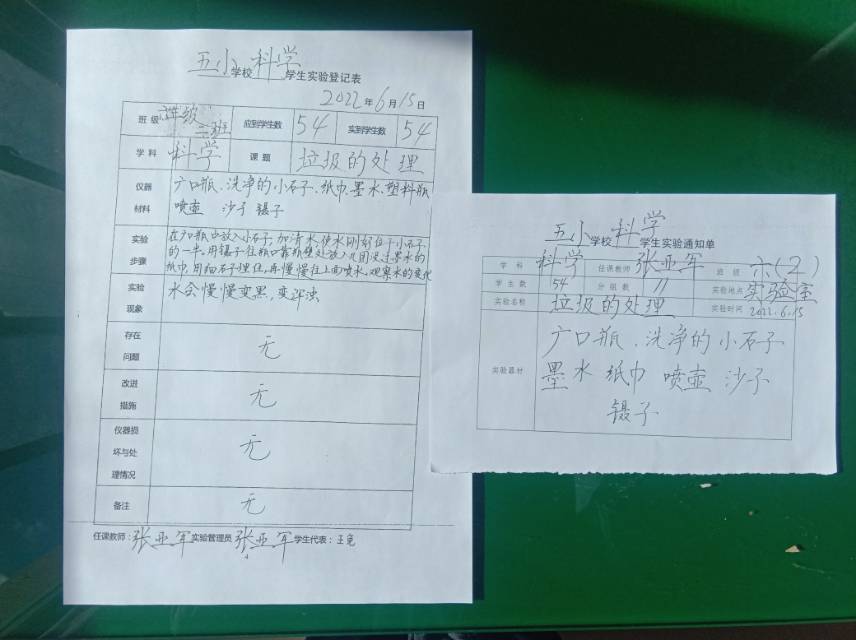 五小学校科学学生实验登记表
2022年6月15日
班级 六年级二班 应到学生数 54 实到学生数 54
学科 科学 课题 垃圾的处理
仪器材料 广口瓶、洗净的小石子、纸巾、墨水、塑料瓶
喷壶 沙子 镊子
实验步骤 在广口瓶中放入小石子,加清水,使水刚好位于小石子
的一半。用镊子在瓶口靠瓶壁处放入几团浸过墨水的
纸巾,用小石子埋住,再慢慢往上面喷水,观察水的变化
实验现象 水会慢慢变黑,变浑浊
存在问题 无
改进措施 无
仪器损坏与处理情况 无
备注 无
任课教师:张亚军 实验管理员 张亚军 学生代表:
五小学校科学学生实验通知单
学科 科学 任课教师 张亚军 班级 六(2)
学生数 54 分组数 11 实验地点 实验室
实验名称 垃圾的处理 实验时间 2022.6.15
实验器材 广口瓶、洗净的小石子
墨水 纸巾 喷壶 沙子
镊子